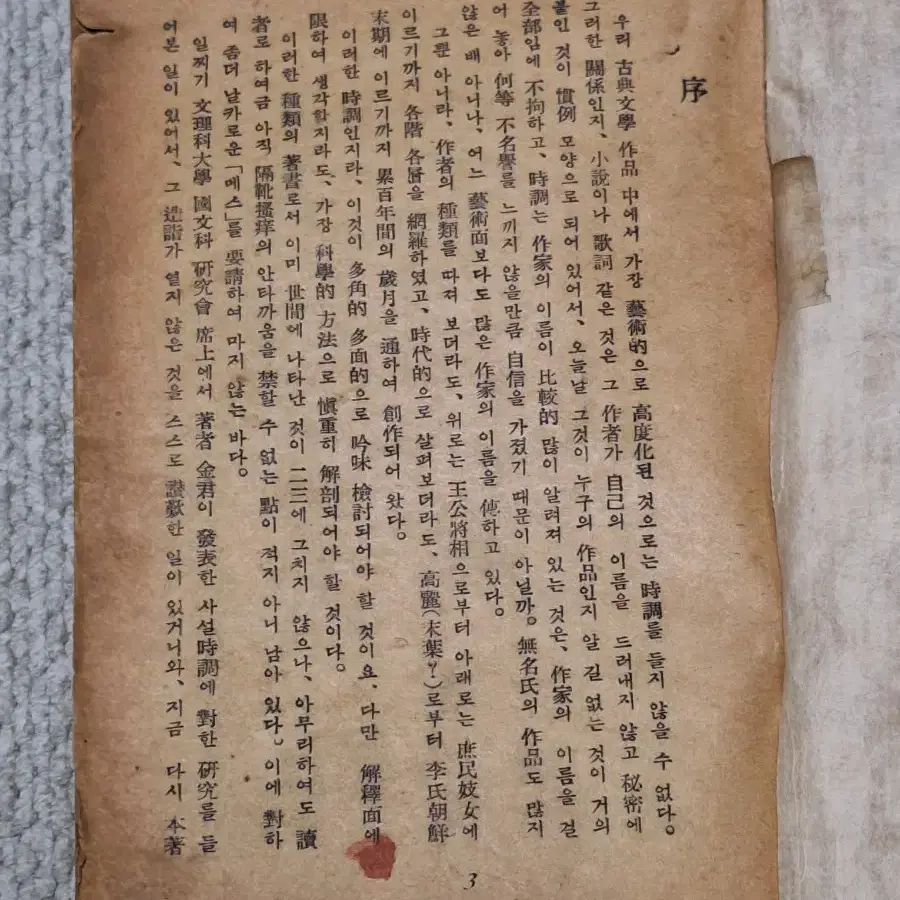 序
우리 古典文學 作品 中에서 가장 藝術的으로 高度化된 것으로는 時調를 들지 않을 수 없다。
그러한 關係인지、小說이나 歌詞 같은 것은 그 作者가 自己의 이름을 드러내지 않고 秘密에
붙인 것이 慣例 모양으로 되어 있어서、오늘날 그것이 누구의 作品인지 알 길 없는 것이 거의
全部임에 不拘하고、時調는 作家의 이름이 比較的 많이 알려져 있는 것은、作家의 이름을 걸
어 놓아 何等 不名譽를 느끼지 않을만큼 自信을 가졌기 때문이 아닐까。無名氏의 作品도 많지
않은 배 아니나、어느 藝術面보다도 많은 作家의 이름을 傳하고 있다。
그뿐 아니라、作者의 種類를 따져 보더라도、위로는 王公將相으로부터 아래로는 庶民妓女에
이르기까지 各階 各層을 網羅하였고、時代的으로 살펴보더라도、高麗(末葉?)로부터 李氏朝鮮
末期에 이르기까지 累百年間의 歲月을 通하여 創作되어 왔다。
이러한 時調인지라、이것이 多角的 多面的으로 吟味 檢討되어야 할 것이요、다만 解釋面에
限하여 생각할지라도、가장 科學的 方法으로 愼重히 解剖되어야 할 것이다。
이러한 種類의 著書로서 이미 世間에 나타난 것이 二三에 그치지 않으나、아무리하여도 讀
者로 하여금 아직 隔靴搔痒의 안타까움을 禁할 수 없는 點이 적지 아니 남아 있다。이에 對하
여 좀더 날카로운「메스」를 要請하여 마지 않는 바다。
일찌기 文理科大學 國文科 研究會 席上에서 著者 金君이 發表한 사설時調에 對한 研究를 들
어본 일이 있어서、그 造詣가 옅지 않은 것을 스스로 讚歎한 일이 있거니와、지금 다시 本著
3